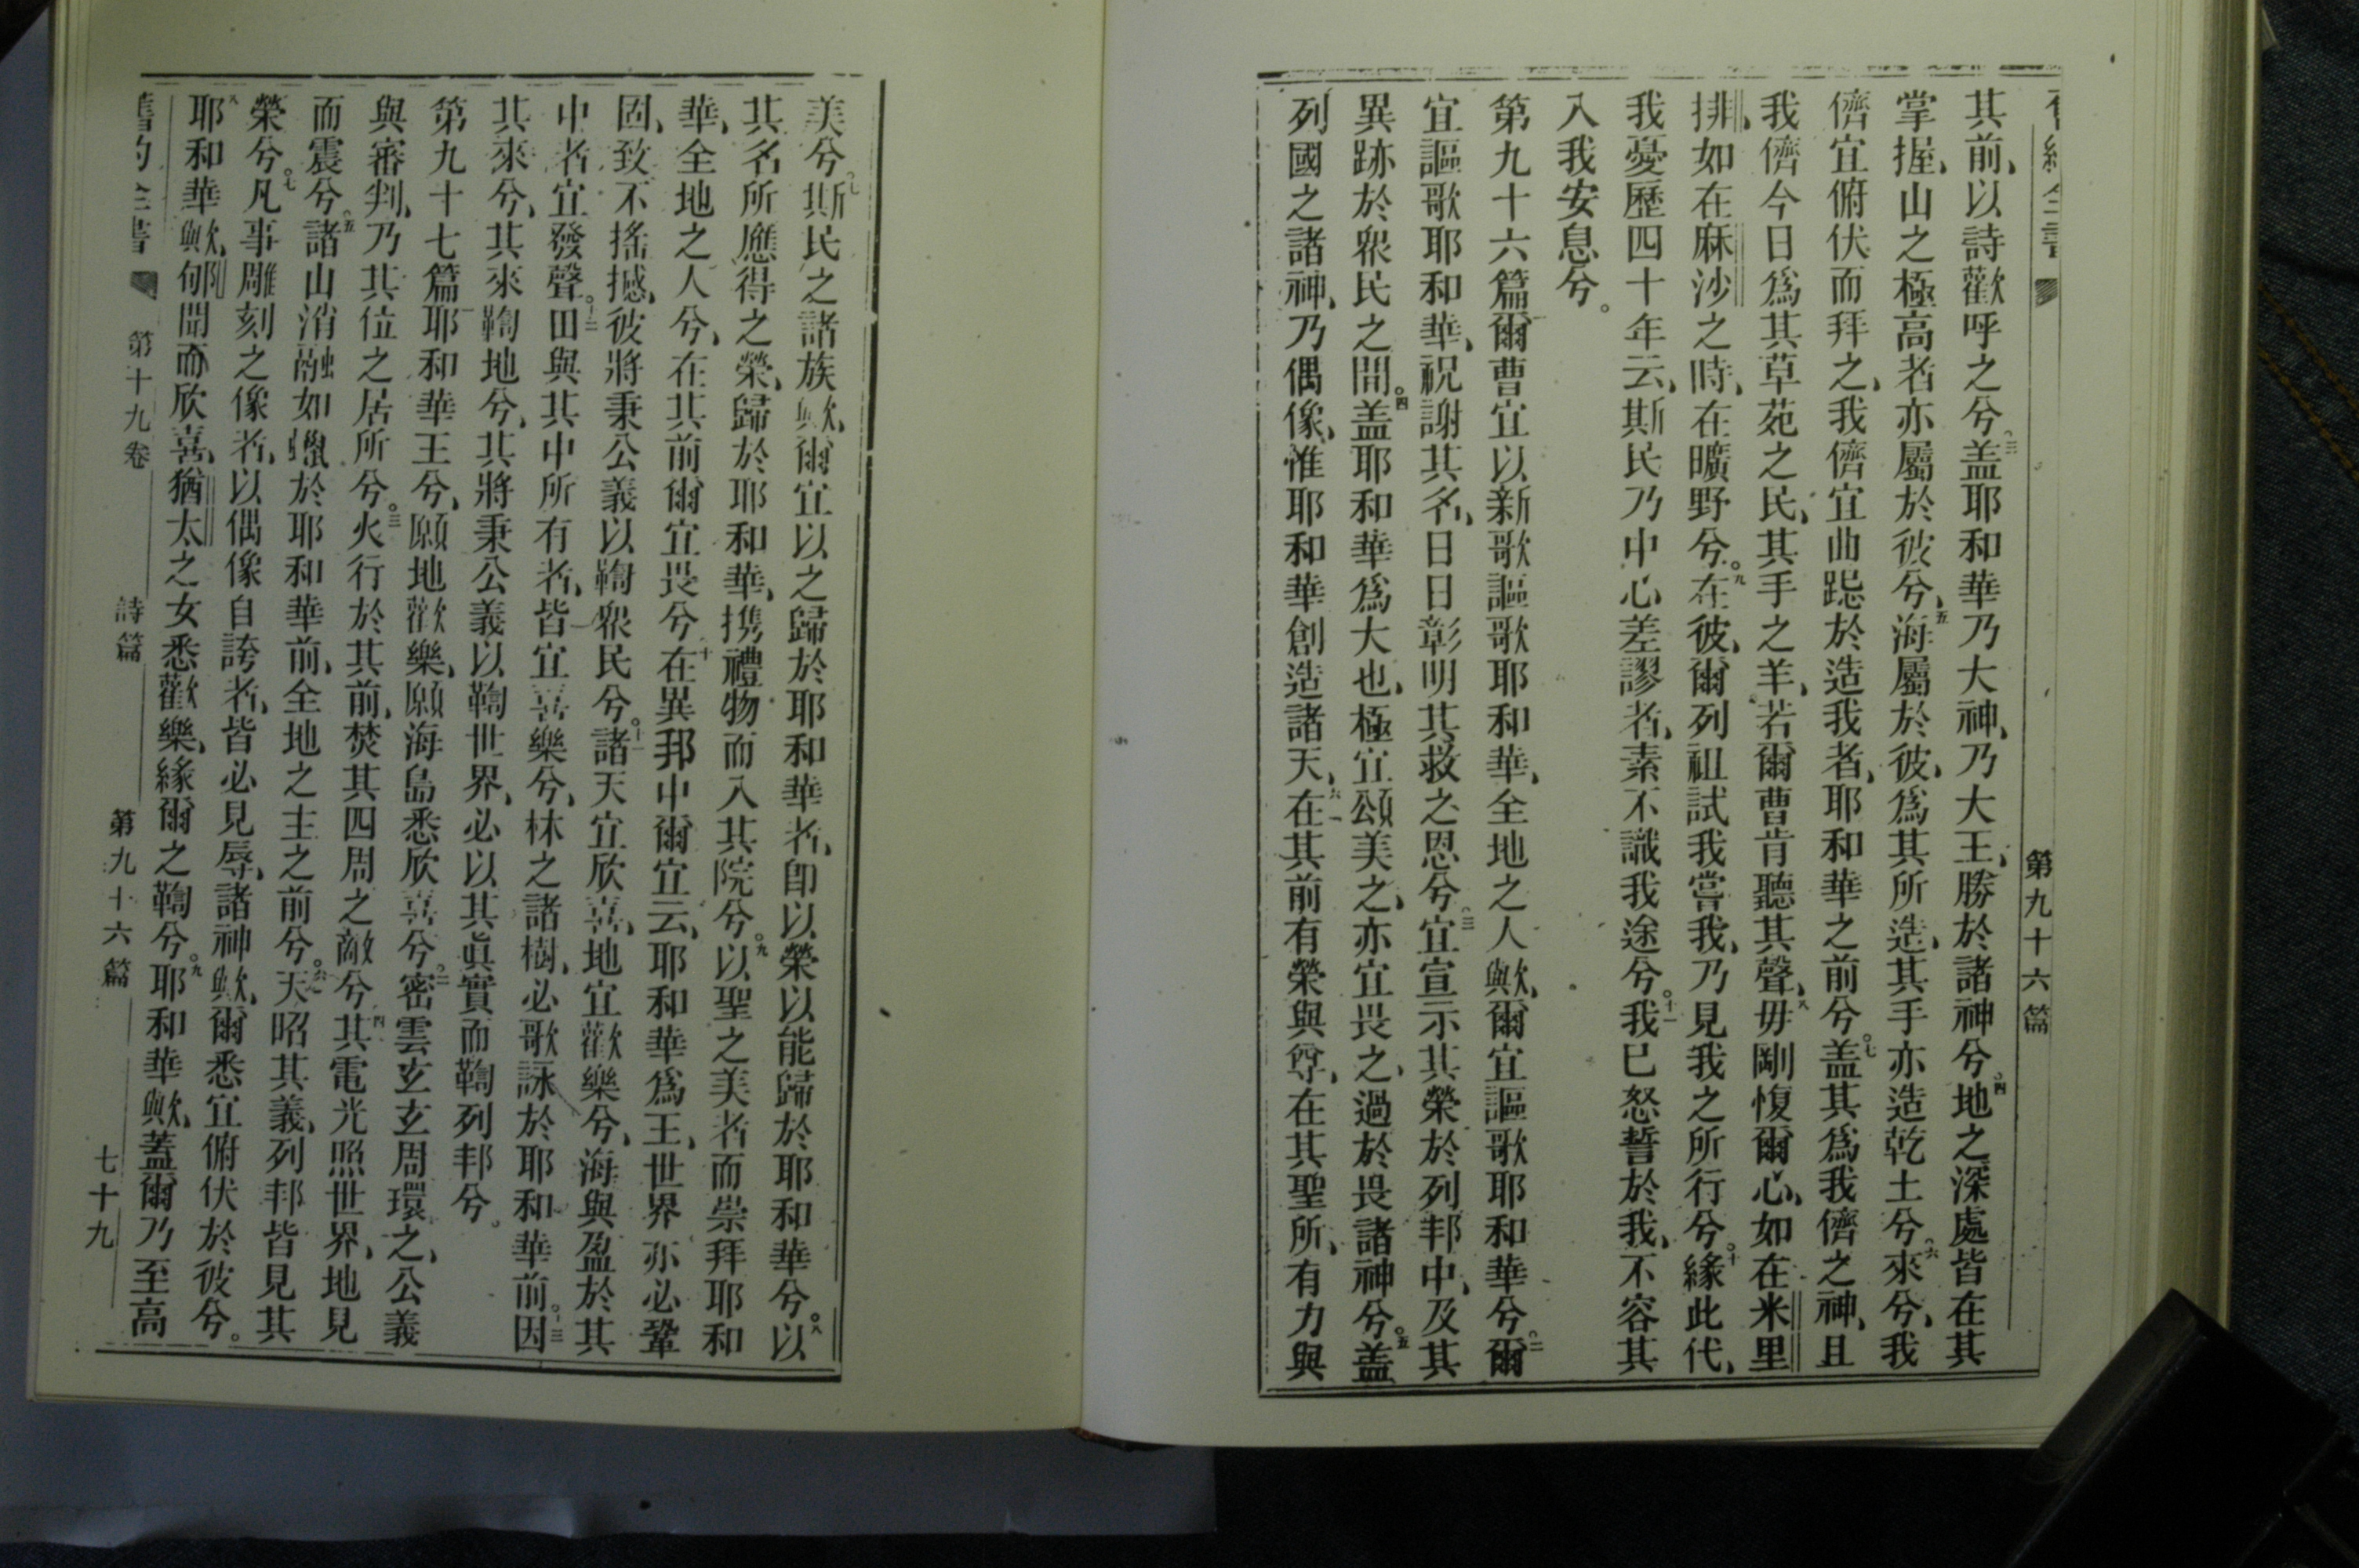 第九十六篇
其前、以詩歡呼之兮、三盖耶和華乃大神、乃大王、勝於諸神兮、四地之深處皆在其
掌握、山之極高者亦屬於彼兮、五海屬於彼、爲其所造、其手亦造乾土兮、六來兮、我
儕宜俯伏而拜之、我儕宜曲跽於造我者、耶和華之前兮。七盖其爲我儕之神、且
我儕今日爲其草苑之民、其手之羊、若爾曹肯聽其聲、八毋剛愎爾心、如在米里
排、如在麻沙之時、在曠野兮。九在彼、爾列祖試我嘗我、乃見我之所行兮。十緣此代、
我憂歷四十年云、斯民乃中心差謬者、素不識我途兮。十一我已怒誓於我、不容其
入我安息兮。
第九十六篇一爾曹宜以新歌謳歌耶和華、全地之人歟、爾宜謳歌耶和華兮。二爾
宜謳歌耶和華、祝謝其名、日日彰明其救之恩兮、三宜宣示其榮於列邦中、及其
異跡於衆民之間。四盖耶和華爲大也、極宜頌美之、亦宜畏之、過於畏諸神兮。五盖
列國之諸神、乃偶像、惟耶和華創造諸天、六在其前有榮與尊、在其聖所、有力與
美兮。七斯民之諸族歟、爾宜以之歸於耶和華者、卽以榮以能歸於耶和華兮。八以
其名所應得之榮、歸於耶和華、携禮物而入其院兮。九以聖之美者而崇拜耶和
華、全地之人兮、在其前爾宜畏兮、十在異邦中爾宜云、耶和華爲王、世界亦必鞏
固、致不搖撼、彼將秉公義以鞫衆民兮。十一諸天宜欣喜、地宜歡樂兮、海與盈於其
中者、宜發聲。十二田與其中所有者、皆宜喜樂兮、林之諸樹、必歌詠於耶和華前。十三因
其來兮、其來鞫地兮、其將秉公義以鞫世界、必以其眞實而鞫列邦兮。
第九十七篇一耶和華王兮、願地歡樂、願海島悉欣喜兮。二密雲玄玄周環之、公義
與審判、乃其位之居所兮。三火行於其前、焚其四周之敵兮、四其電光照世界、地見
而震兮、五諸山消融如蠟於耶和華前、全地之主之前兮。六天昭其義、列邦皆見其
榮兮。七凡事雕刻之像者、以偶像自誇者、皆必見辱、諸神歟、爾悉宜俯伏於彼兮。
八耶和華歟、郇聞而欣喜、猶太之女悉歡樂、緣爾之鞫兮。九耶和華歟、蓋爾乃至高
舊約全書 第十九卷 詩篇 第九十六篇 七十九